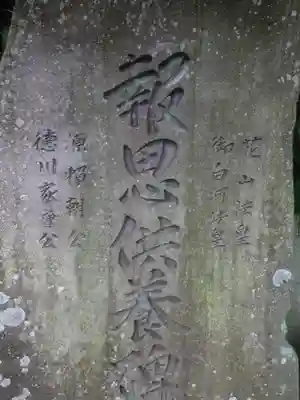 花山法皇
御白河法皇
報恩供養碑
源頼朝公
徳川家重公